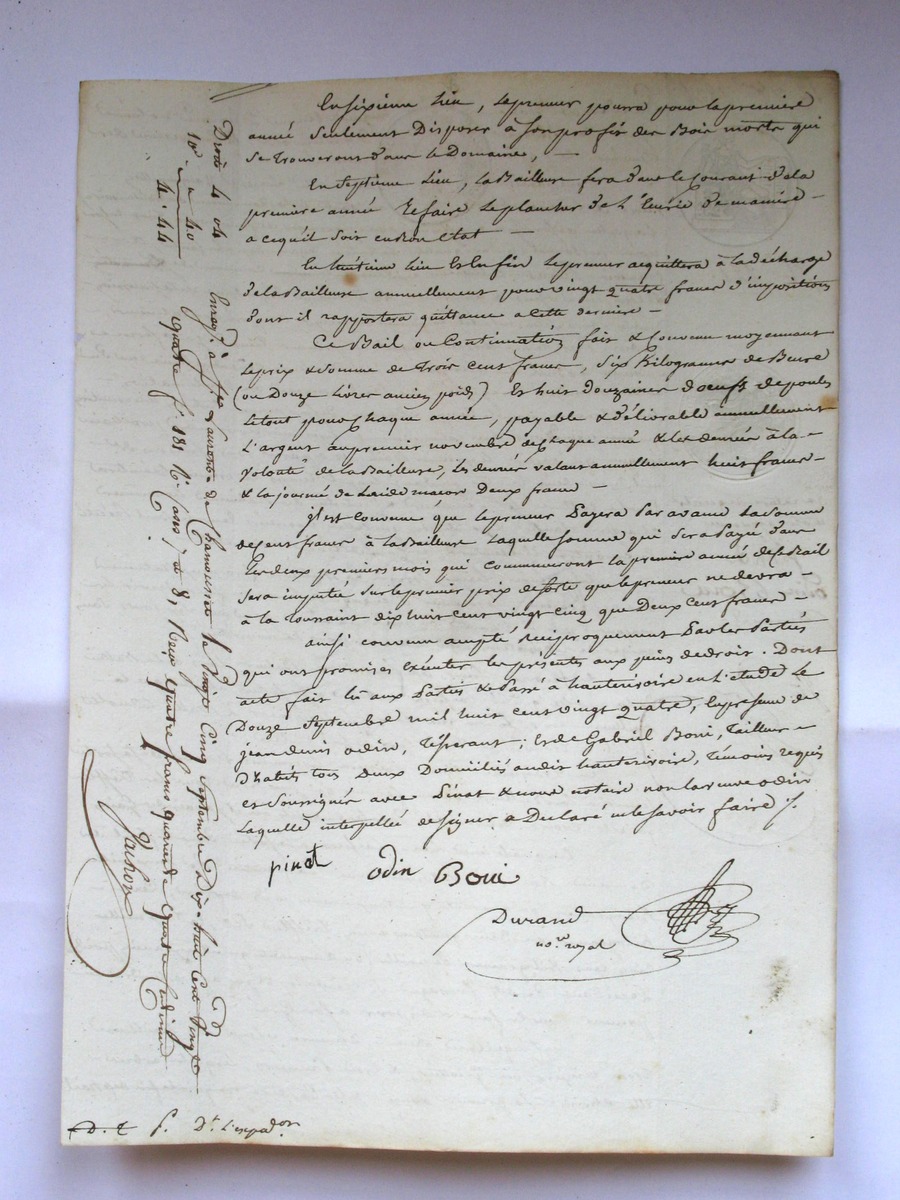 En sixieme lieu, le preneur pourra pour la premiere
année seulement Disposer à son profit des Bois morts qui
se trouveront dans le Domaine, —
En Septieme lieu, la Bailleuse fera dans le Courant de la
premiere année Refaire le plancher de L'Ecurie de maniere -
a ce qu'il soit en Bon Etat —
En huitieme lieu Et Enfin le preneur acquittera à la décharge
de la Bailleuse annuellement pour vingt quatre francs d'impositions
dont il rapportera quittance a Cette derniere —
Ce Bail ou Continuation fait & Convenu moyennant
le prix & somme de Trois Cent francs, Six Kilogrames de Beure
(ou Douze livres ancien poids) Et huit douzaines d'oeufs de poules
le tout pour Chaque année, payable & délivrable annuellement
L'argent au premier novembre de Chaque année & les denrées à la -
volonté de la Bailleuse, les denrées valant annuellement huit francs -
& la journée de Deux francs —
il est Convenu que le preneur Payera Par avance la Somme
de Cent francs à la Bailleuse laquelle somme qui Sera Payé dans
les deux premiers mois qui Commenceront la premiere année de Ce Bail
Sera imputée Sur le premier prix de sorte que le preneur ne devra -
à la Toussaint dix huit cent vingt Cinq que Deux Cent francs -
ainsi convenu accepté Réciproquement Par les Parties
qui ont promises exécuter les présentes aux peines de droit. Dont
acte fait lû aux Parties & Passé à hauterivoire en L'étude le
Douze Septembre mil huit cent vingt quatre, En presence de
jean denis odin, Tisserant; et de Gabriel Boni, Tailleur -
d'habits tous Deux Domiciliés audit hauterivoire, Témoins requis
et Soussignés avec Pinat & nous notaire non la veuve odin
Laquelle interpellée de signer a Déclaré ne le savoir faire ./.
pinat odin Boni
Durand
no.re royal
Droits 4 04
10e " 40
4 " 44
Enregé à St Laurent de Chamousset le Vingt Cinq Septembre Dix huit Cent Vingt
quatre fo 181 Ro Cases 7 et 8, Reçu quatre francs quarante quatre Centimes
Vachon
D. E f. Dt L'expedon